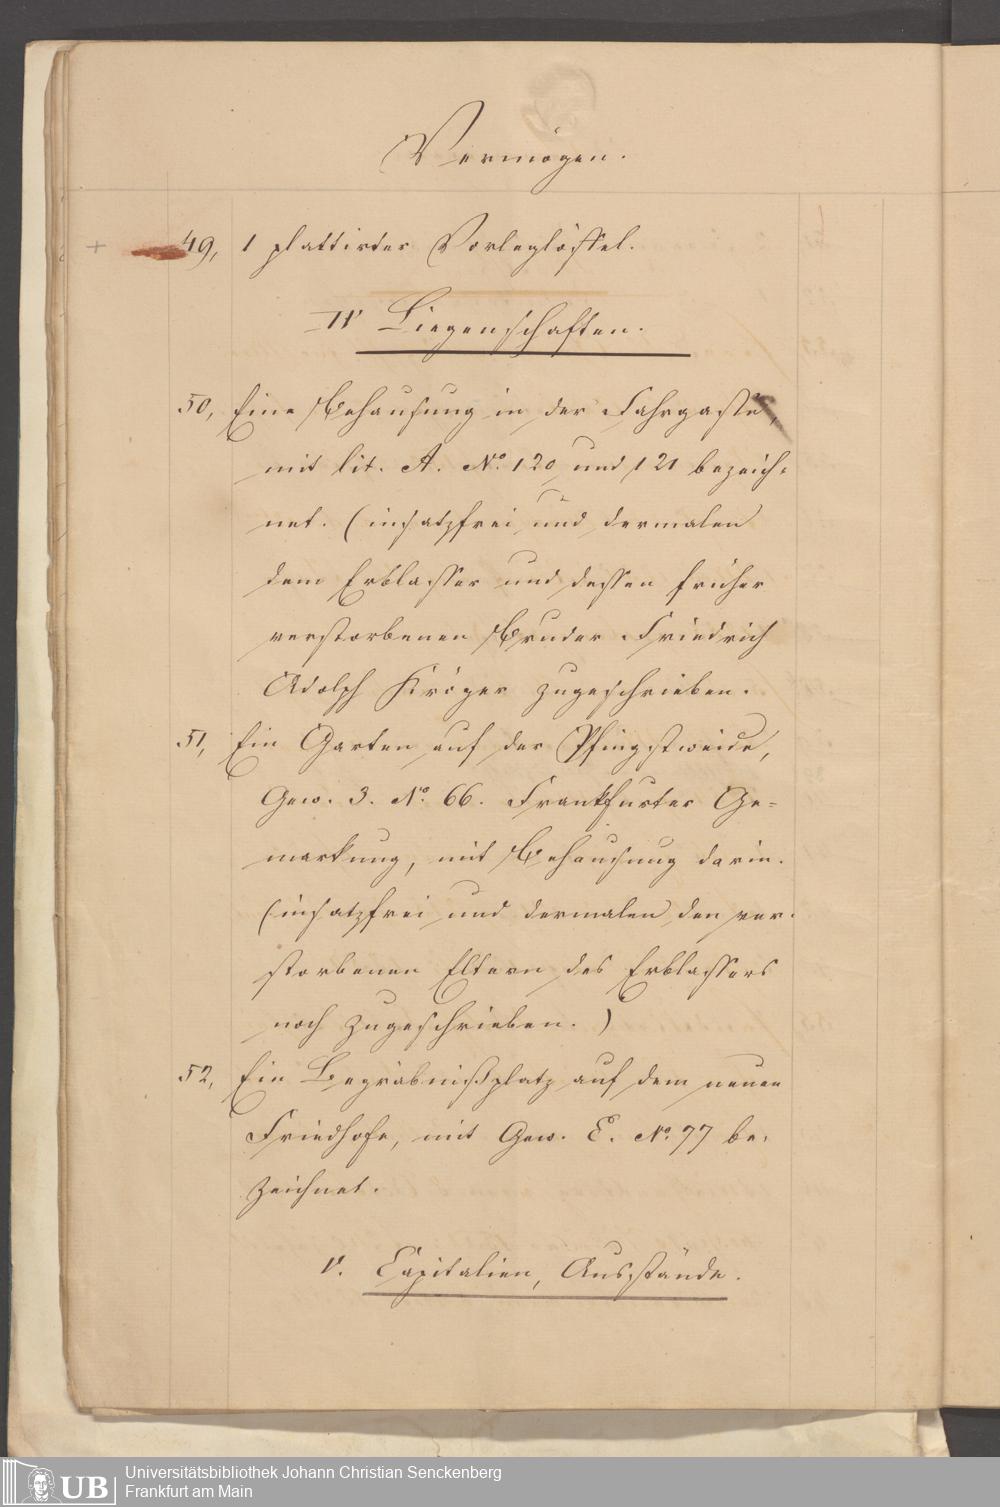 Vermögen.
+ 49, 1 plattirter Vorleglöffel.
IV Liegenschaften.
50, Eine Behausung in der Fahrgasse,
mit lit. A. No. 120 und 121 bezeich=
net. (insatzfrei und dermalen
dem Erblasser und dessen früher
verstorbenen Bruder Friedrich
Adolph Kröger zugeschrieben.
51, Ein Garten auf der Pfingstweide,
Gew. 3. No. 66. Frankfurter Ge=
markung, mit Behausung darin.
(insatzfrei und dermalen den ver=
storbenen Eltern des Erblassers
noch zugeschrieben.)
52, Ein Begräbnißplatz auf dem neuen
Friedhofe, mit Gew. E. No. 77 be=
zeichnet.
V. Capitalien, Ausstände.
UB
Universitätsbibliothek Johann Christian Senckenberg
Frankfurt am Main